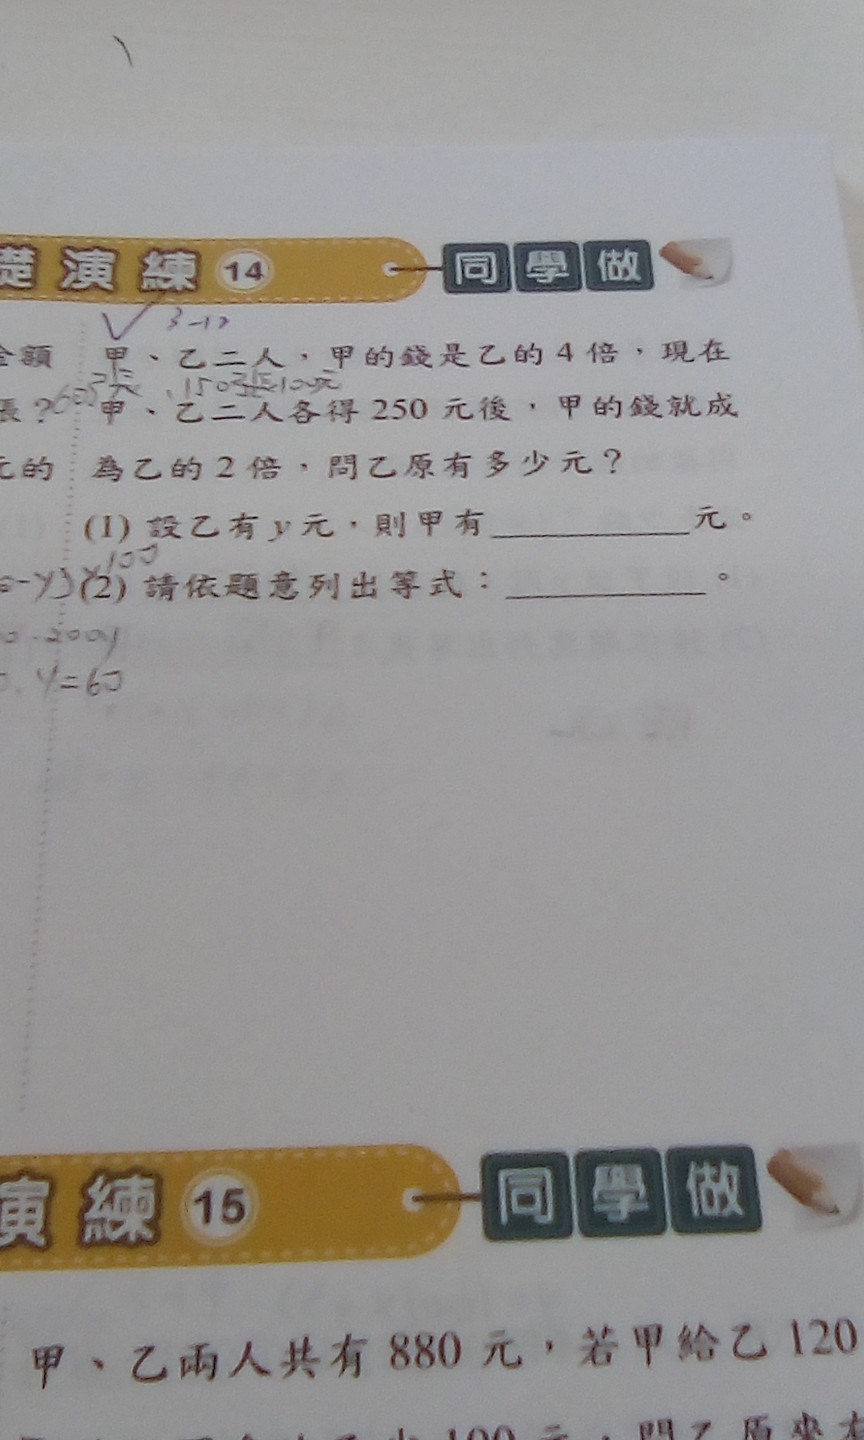 礎演練 14 同學做
3-10
金額 甲、乙二人，甲的錢是乙的 4 倍，現在
150張100元
張？ 甲、乙二人各得 250 元後，甲的錢就成
元的 為乙的 2 倍，問乙原有多少元？
(1) 設乙有 y 元，則甲有__________元。
-y)×100
(2) 請依題意列出等式：__________。
-200y
y=60
演練 15 同學做
甲、乙兩人共有 880 元，若甲給乙 120
100 元，問乙原來有